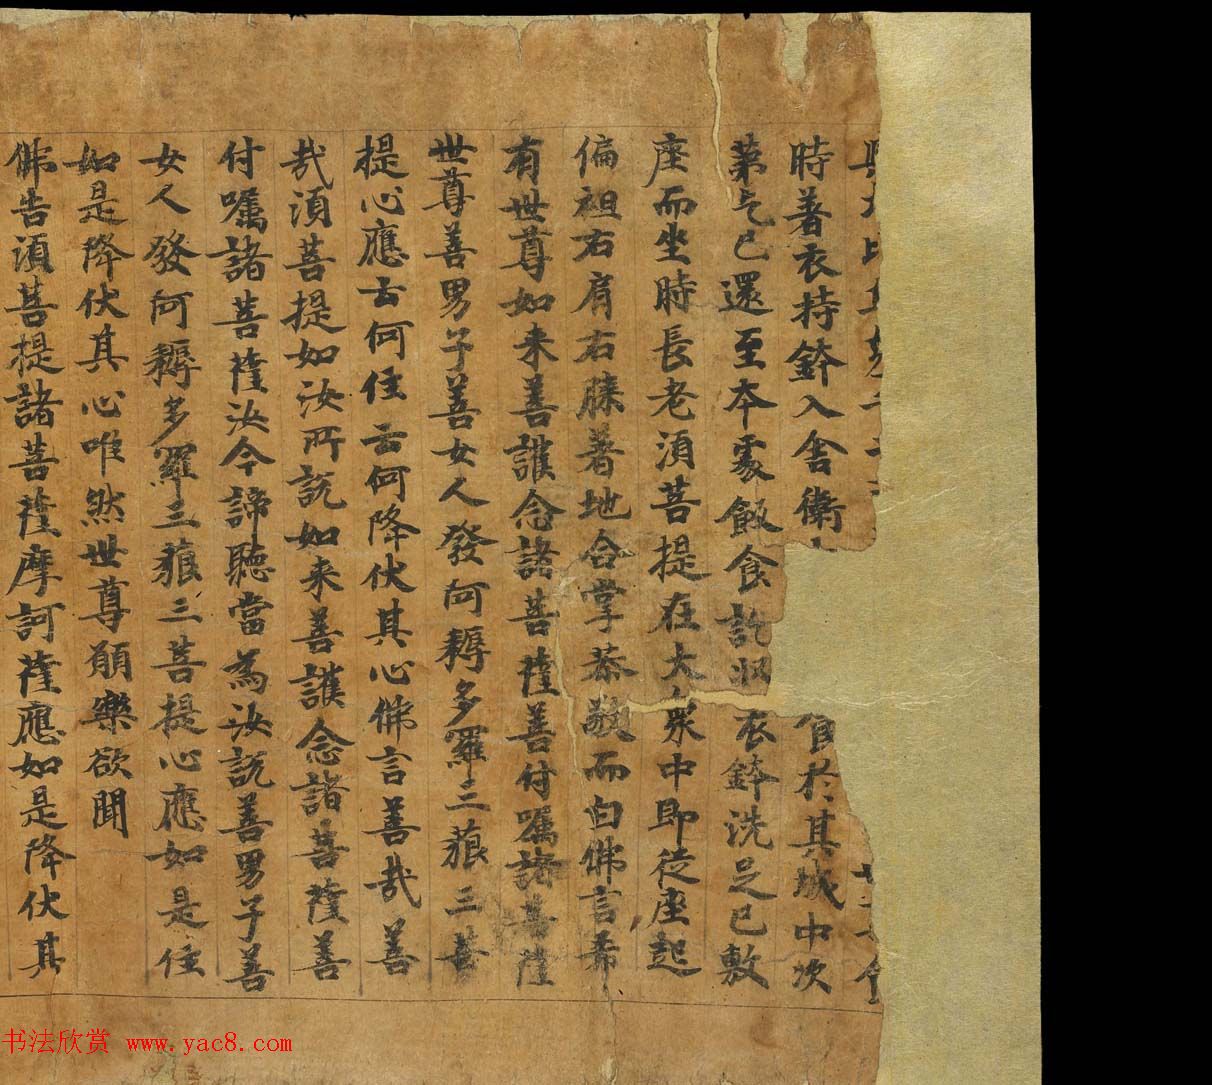 與大比丘
時著衣持鉢入舍衛 食於其城中次
苐乞已還至本處飯食訖収衣鉢洗足已敷
座而坐時長老湏菩提在大衆中即從座起
偏袒右肩右膝著地合掌恭敬而白佛言希
有世尊如来善護念諸菩薩善付囑諸菩薩
世尊善男子善女人發阿耨多羅三藐三菩
提心應云何住云何降伏其心佛言善哉善
哉湏菩提如汝所説如来善護念諸菩薩善
付囑諸菩薩汝今諦聽當為汝説善男子善
女人發阿耨多羅三藐三菩提心應如是住
如是降伏其心唯然世尊願樂欲聞
佛告湏菩提諸菩薩摩訶薩應如是降伏其
书法欣赏 www.yac8.com